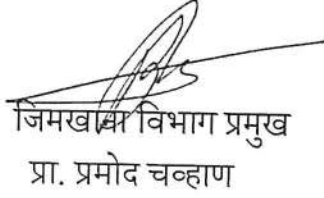 जिमखाना विभाग प्रमुख
प्रा. प्रमोद चव्हाण